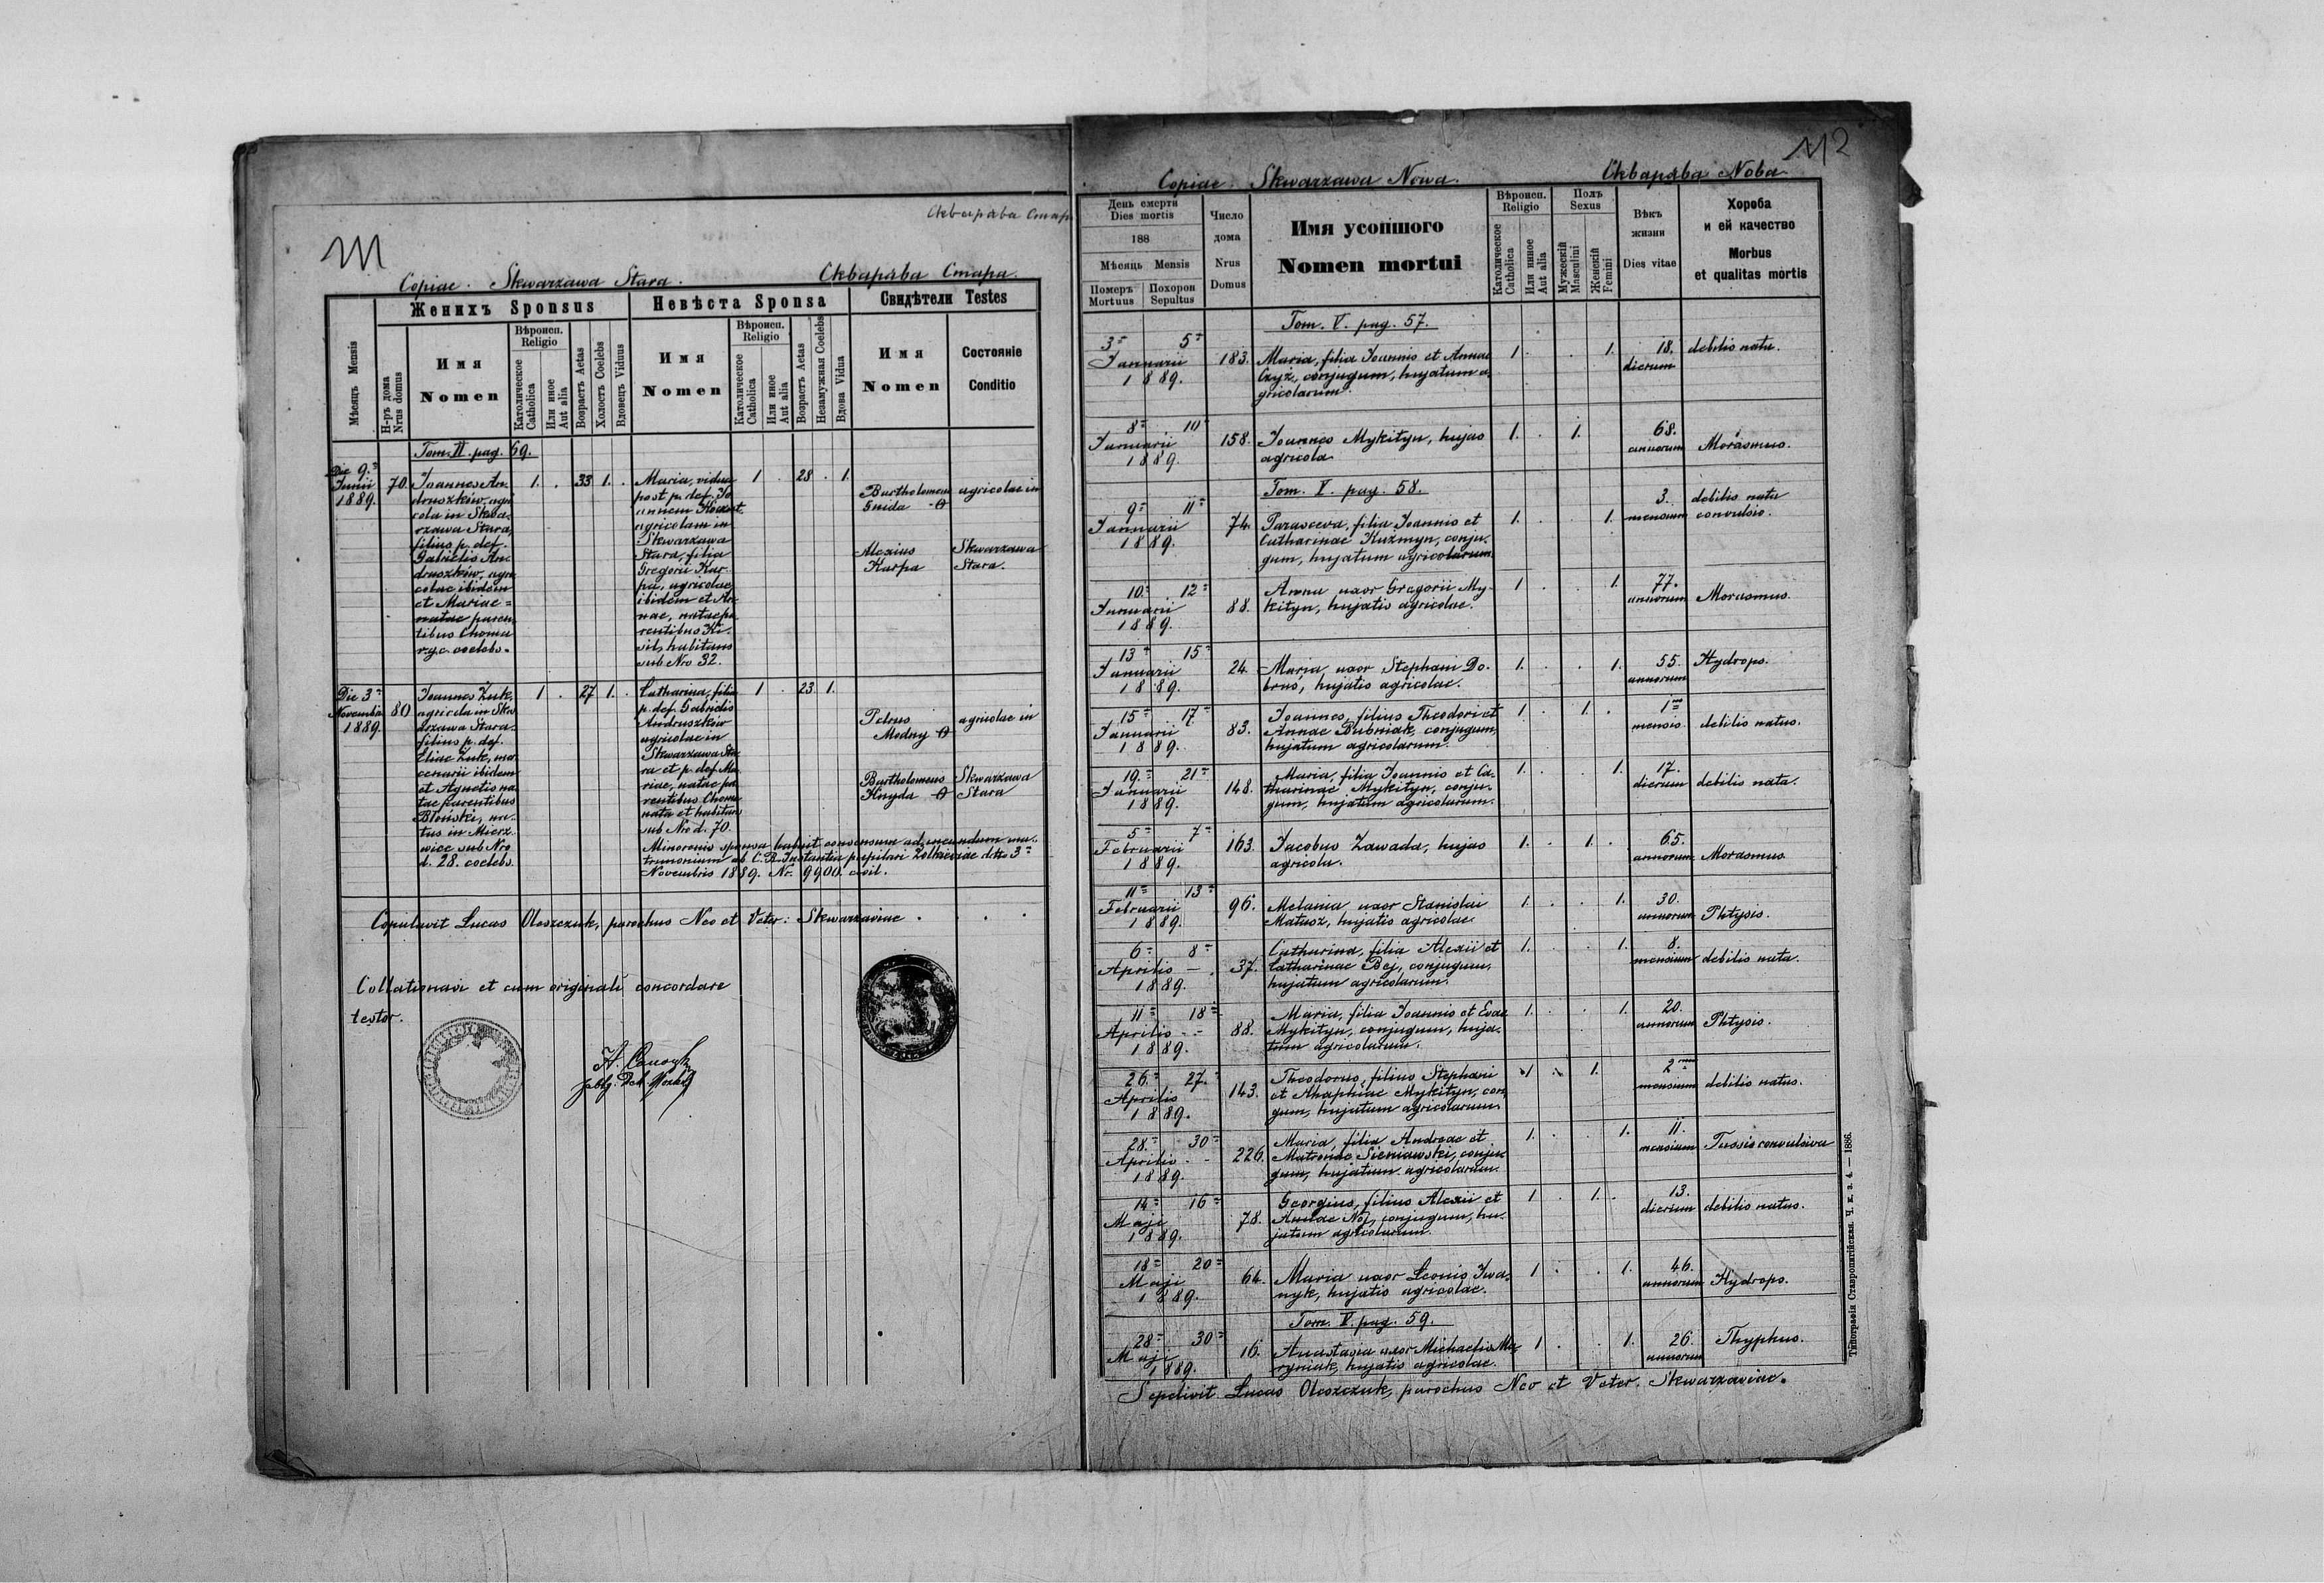 Скварява Стара
111
Copiae. Skwarzawa Stara. Скварява Стара.
Мѣсяць Mensis
Женихъ Sponsus
Невѣста Sponsa
Свидѣтели Testes
Н-ръ дома Nrus domus
Имя Nomen
Вѣроисп. Religio
Католическое Catholica
Или иное Aut alia
Возрастъ Aetas
Холостъ Coelebs
Вдовецъ Viduus
Имя Nomen
Вѣроисп. Religio
Католическое Catholica
Или иное Aut alia
Возрастъ Aetas
Незамужная Coelebs
Вдова Vidua
Имя Nomen
Состояніе Conditio
Tom. II. pag. 69.
Die 9.
Junii
1889.
70.
Joannes An-
druszków, agri
cola in Skwa-
rzawa Stara,
filius p. def.
Gabrielis An-
druszków, agri
colae ibidem
et Mariae =
natae paren-
tibus Choma
r.g.c. coelebs.
1. . 33 1. .
Maria, vidua
post p. def. Jo
annem
agricolam in
Skwarzawa
Stara, filia
Gregorii Kar-
pa, agricolae
ibidem et An-
nae, natae pa
rentibus Ki-
sil, habitans
sub Nro 32.
1 . 28 . 1.
Bartholomeus
Gnida
agricolae in
Alexius
Karpa
Skwarzawa
Stara.
Die 3
Novembris
1889.
80
Joannes Żuk,
agricola in Skwa
rzawa Stara
filius p. def.
Eliae Żuk, mer
cenarii ibidem
et Agnetis na
tae parentibus
Błonski, na-
tus in Mierz
wice sub Nro
d. 28. coelebs.
1 . 27 1. .
Catharina, filia
p. def. Gabrielis
Andruszków
agricolae in
Skwarzawa Sta
ra et p. def. Ma
riae, natae pa
rentibus Choma
nata et habitans
sub Nro d. 70.
1 . 23 1.
Petrus
Modny
agricolae in
Bartholomeus
Hnyda
Skwarzawa
Stara
Minorenis sponsa habuit consensum ad ineundum ma-
trimonium ab C. R. Instantia pupilari Zolkieviae dtto 3
Novembris 1889. Nr. 9900. civil.
Copulavit Lucas Oleszczuk, parochus Neo et Veter: Skwarzaviae.
Collationavi et cum originali concordare
testor.
112
Copiae Skwarzawa Nowa. Скварява Нова
День смерти Dies mortis
188
Мѣсяць Mensis
Померъ Mortuus
Похорон Sepultus
Число дома Nrus Domus
Имя усопшого Nomen mortui
Вѣроисп. Religio
Католическое Catholica
Или иное Aut alia
Полъ Sexus
Мужескій Masculini
Женскій Femini
Вѣкъ жизни Dies vitae
Хороба и ей качество
Morbus et qualitas mortis
Tom. V. pag. 57.
3 5
Januarii
1889.
183. Maria, filia Joannis et Annae
Czyż, conjugum, hujatum a
gricolarum.
1 . . 1. 18.
dierum debilis nata.
8 10
Januarii
1889.
158. Joannes Mykityn, hujas
agricola
1. . 1. 68.
annorum Morasmus.
Tom. V. pag. 58.
9 11
Januarii
1889.
74. Parasceva, filia Joannis et
Catharinae Kuzmyn, conju-
gum, hujatum agricolarum
1. . 1. 3.
mensium debilis nata
convulsio.
10 12
Januarii
1889.
88. Anna uxor Gregorii My-
kityn, hujatis agricolae.
1 . . 1. 77.
annorum Morasmus.
13 15
Januarii
1889.
24. Maria, uxor Stephani Do-
brus, hujatis agricolae.
1. . . 1. 55.
annorum Hydrops.
15 17
Januarii
1889.
83. Joannes, filius Theodori et
Annae Bubniak, conjugum,
hujatum agricolarum.
1 . 1. . 1
mensis debilis natus.
19. 21
Januarii
1889.
148. Maria, filia Joannis et Ca-
tharinae Mykityn, conju-
gum, hujatum agricolarum.
1. . . 1. 17.
dierum debilis nata.
5 7
Februarii
1889.
163. Jacobus Zawada, hujas
agricola.
1. . 1. . 65.
annorum Morasmus
11 13
Februarii
1889.
96. Melania uxor Stanislai
Matusz, hujatis agricolae
1. . . 1. 30.
annorum Phtysis.
6 8
Aprilis
1889.
37. Catharina, filia Alexii et
Catharinae Bej, conjugum,
hujatum agricolarum.
1. . . 1. 8.
mensium debilis nata.
11 18
Aprilis
1889.
88. Maria, filia Joannis et Evae
Mykityn, conjugum, huja-
tum agricolarum.
1. . . 1. 20.
annorum Phtysis.
26. 27.
Aprilis
1889.
143. Theodorus, filius Stephani
et Ahaphiae Mykityn, con
gum, hujatum agricolarum
1 . 1. 2
mensium debilis natus.
28. 30
Aprilis
1889.
226. Maria, filia Andreae et
Matronae Sieniawski, conju
gum, hujatum agricolarum
1. . . 1. 11.
mensium Tussis convulsiva
14 16
Maji
1889.
78. Georgius, filius Alexii et
Annae Noj, conjugum, hu-
jatum agricolarum.
1 . 1. . 13.
dierum debilis natus.
18 20
Maji
1889.
64. Maria uxor Leonis Iwa-
nyk, hujatis agricolae.
1 . . 1. 46.
annorum Hydrops.
Tom. V. pag. 59.
28 30
Maji
1889.
16. Anastasia uxor Michaelis Ma-
ryniak, hujatis agricolae.
1 . . 1. 26.
annorum Thyphus.
Sepelivit Lucas Oleszczuk, parochus Neo et Veter. Skwarzaviae.
Типографія Ставропигійская. Ч. к. з. 4. — 1886.